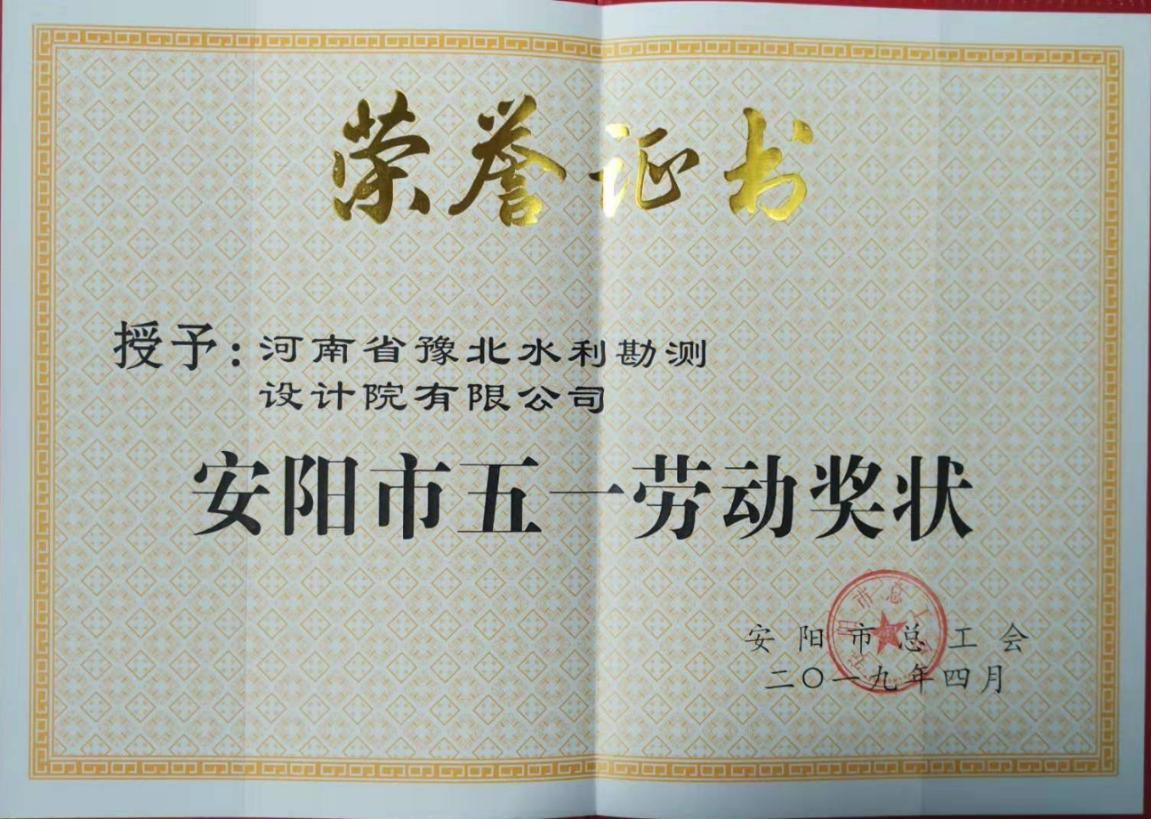 荣誉证书
授予：河南省豫北水利勘测
设计院有限公司
安阳市五一劳动奖状
安阳市总工会
二〇一九年四月